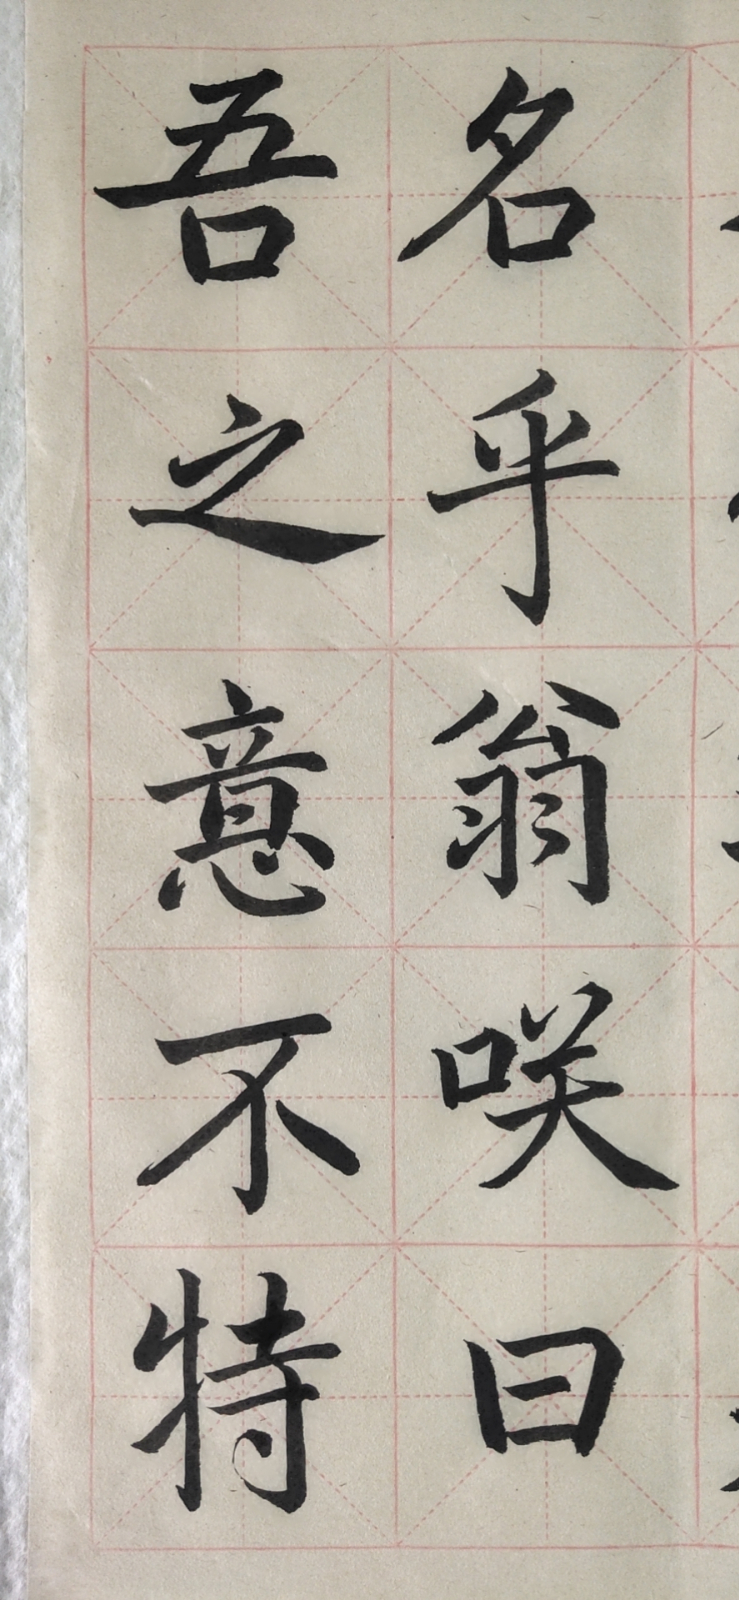 名乎翁咲曰
吾之意不特